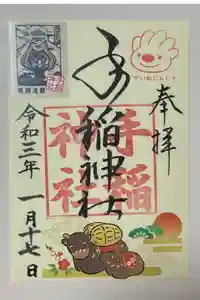 奉拝
手稲神社
手稲
神社
令和三年 一月十七日
ていねにん！！